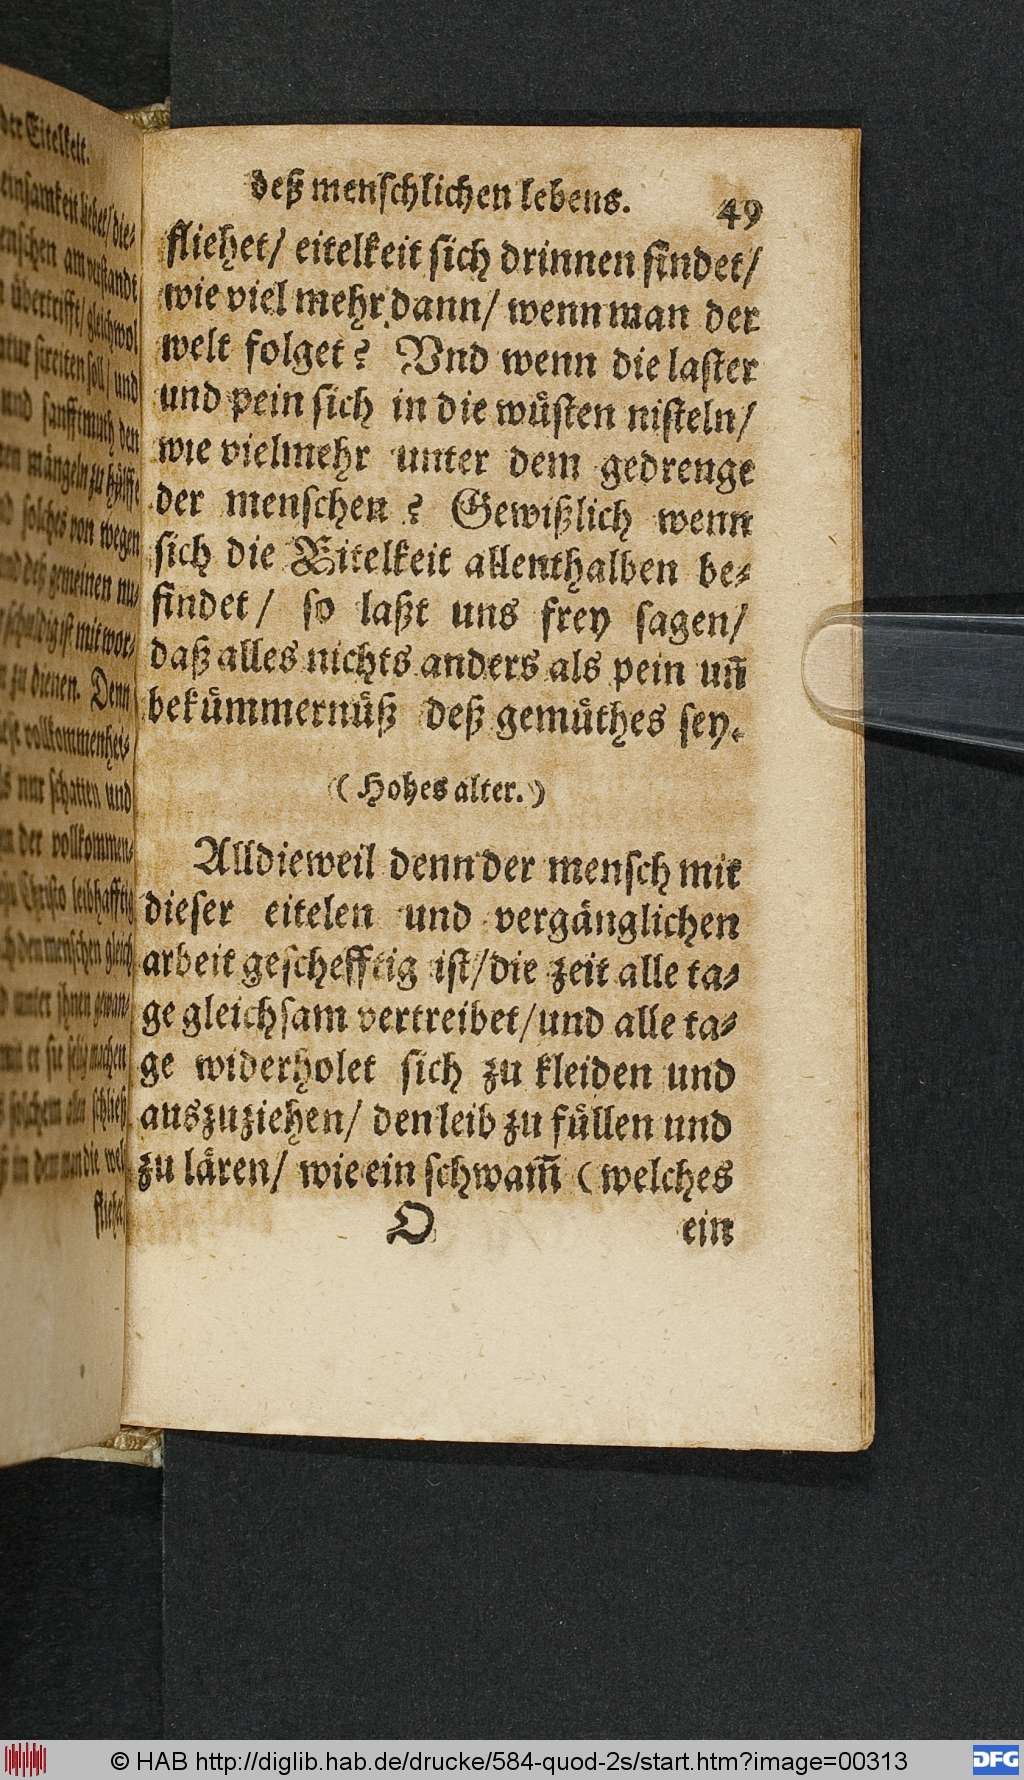 der Eitelkeit.
einsamkeit liebet/die-
menschen am verstandt
übertrifft/gleichwol
streiten soll/und
und sanfftmuth den
mängeln zu hülffe
solches von wegen
und deß gemeinen nu-
schuldig ist mit wor-
zu dienen. Denn
vollkommenhei-
nur schatten und
der vollkommen-
Christo leibhafftig
den menschen gleich
unter ihnen gewan-
er sie selig machen
schließ
die wel
fliehe
deß menschlichen lebens. 49
fliehet/ eitelkeit sich drinnen findet/
wie viel mehr dann/ wenn man der
welt folget? Vnd wenn die laster
und pein sich in die wüsten nisteln/
wie vielmehr unter dem gedrenge
der menschen? Gewißlich wenn
sich die Eitelkeit allenthalben be-
findet/ so laßt uns frey sagen/
daß alles nichts anders als pein uñ
bekümmernüß deß gemüthes sey.
(Hohes alter.)
Alldieweil denn der mensch mit
dieser eitelen und vergänglichen
arbeit geschefftig ist/die zeit alle ta-
ge gleichsam vertreibet/und alle ta-
ge widerholet sich zu kleiden und
auszuziehen/ den leib zu füllen und
zu lären/ wie ein schwam̃ (welches
O ein
© HAB http://diglib.hab.de/drucke/584-quod-2s/start.htm?image=00313
DFG